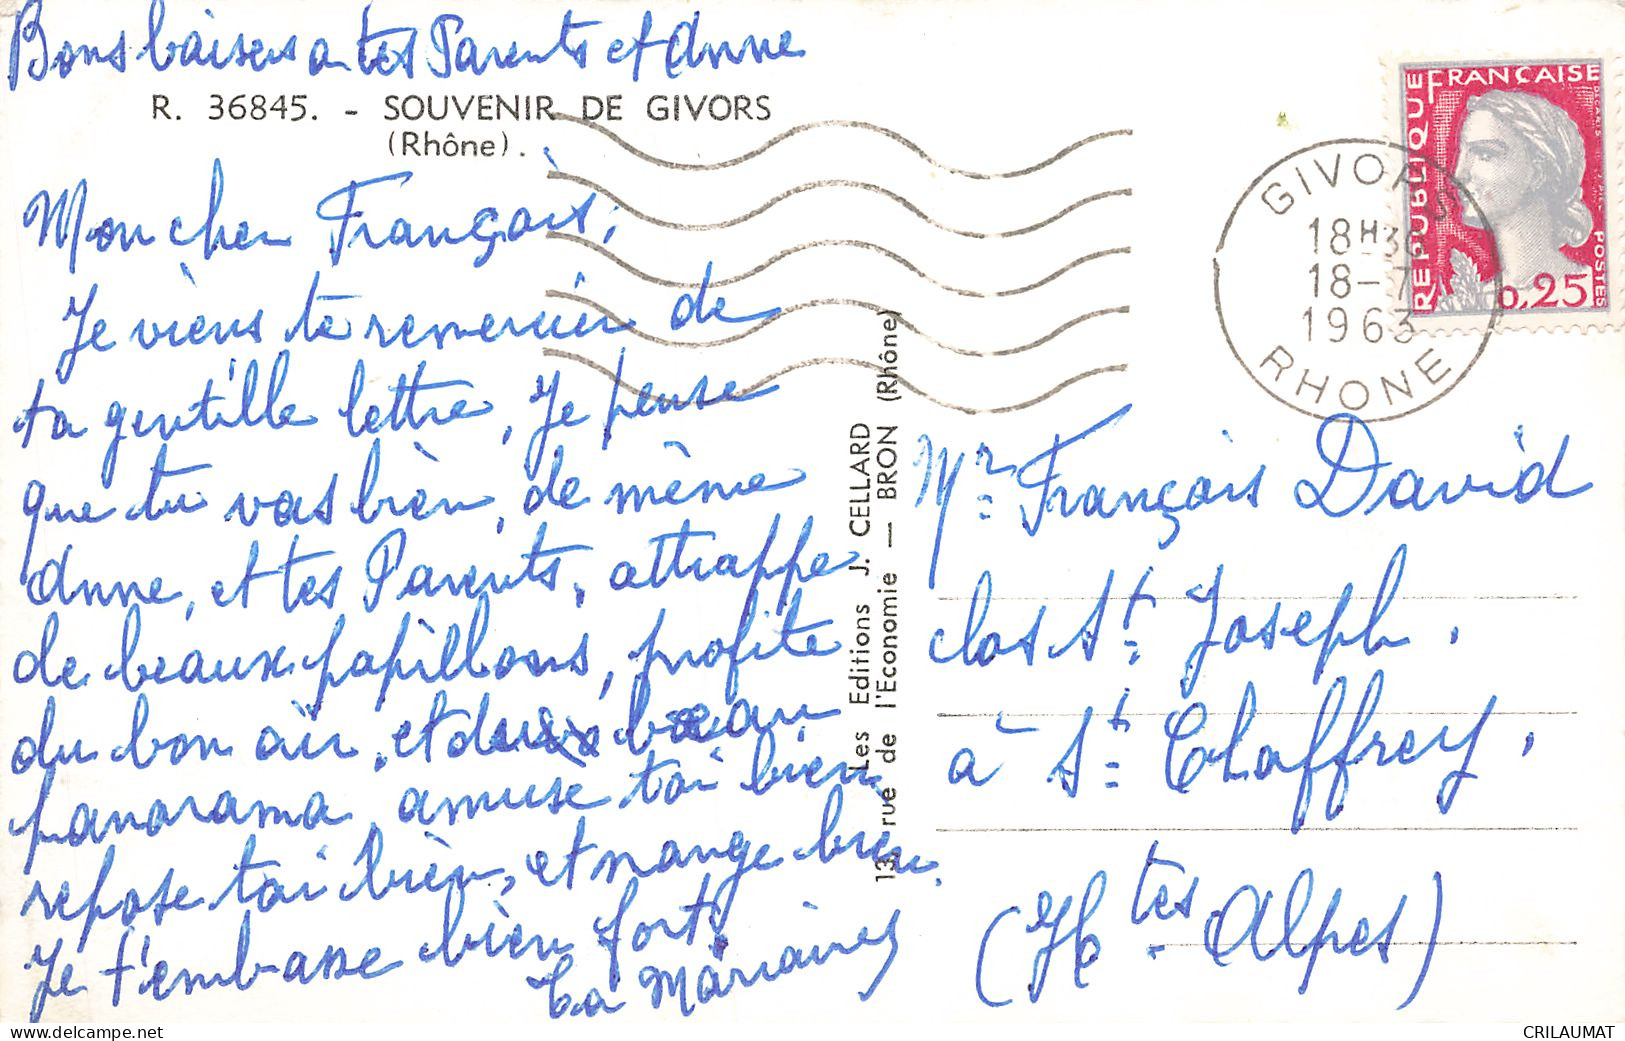 Bons baisers a tes Parents et Anne
R. 36845. - SOUVENIR DE GIVORS
(Rhône).
Mon cher François,
Je viens te remercier de
ta gentille lettre, Je pense
que tu vas bien, de même
Anne, et tes Parents, attrappe
de beaux papillons, profite
du bon air, et du beau
panorama, amuse toi bien
repose toi bien, et mange bien.
Je t'embrasse bien fort.
ta Marraine
Les Editions J. CELLARD
13, rue de l'Economie — BRON (Rhône)
RÉPUBLIQUE FRANÇAISE
POSTES
0,25
GIVORS
18H30
18-7
1963
RHONE
Mr. François David
clos St. Joseph.
à St. Chaffrey.
(Htes. Alpes)
CRILAUMAT